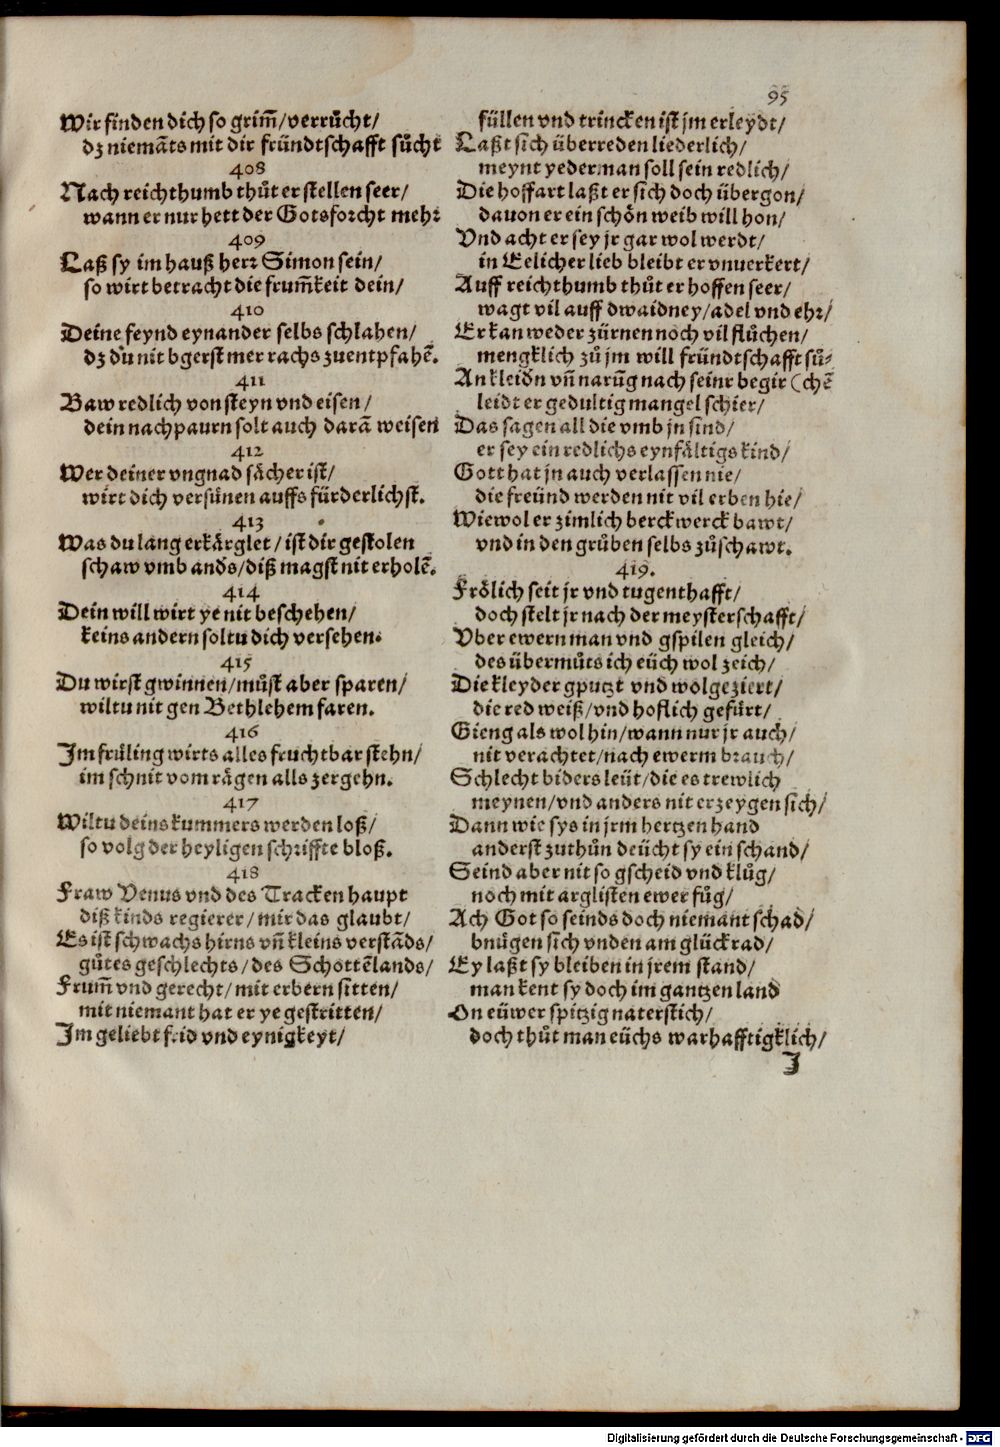 95
Wir finden dich so grim̃/verrůcht/
dz niemãts mit dir fründtschafft sůcht
408
Nach reichthumb thůt er stellen seer/
wann er nur hett der Gotsforcht mehr
409
Laß sy im hauß herr Simon sein/
so wirt betracht die frum̃keit dein/
410
Deine feynd eynander selbs schlahen/
dz du nit bgerst mer rachs zuentpfahẽ.
411
Baw redlich von steyn vnd eisen/
dein nachpaurn solt auch darã weisen
412
Wer deiner vngnad sächer ist/
wirt dich versünen auffs fürderlichst.
413
Was du lang erkärglet/ist dir gestolen
schaw vmb anđs/diß magst nit erholẽ.
414
Dein will wirt ye nit beschehen/
keins andern soltu dich versehen.
415
Du wirst gwinnen/můst aber sparen/
wiltu nit gen Bethlehem faren.
416
Im früling wirts alles fruchtbar stehn/
im schnit vom rägen alls zergehn.
417
Wiltu deins kummers werden loß/
so volg der heyligen schriffte bloß.
418
Fraw Venus vnd des Tracken haupt
diß kinds regierer/mir das glaubt/
Es ist schwachs hirns vñ kleins verstãds/
gůtes geschlechts/des Schottẽlands/
Frum̃ vnd gerecht/mit erbern sitten/
mit niemant hat er ye gestritten/
Im geliebt frid vnd eynigkeyt/
füllen vnd trincken ist jm erleydt/
Laßt sich überreden liederlich/
meynt yederman soll sein redlich/
Die hoffart laßt er sich doch übergon/
dauon er ein schön weib will hon/
Vnd acht er sey jr gar wol werdt/
in Eelicher lieb bleibt er vnuerkert/
Auff reichthumb thůt er hoffen seer/
wagt vil auff dwaidney/adel vnd ehr/
Er kan weder zürnen noch vil flůchen/
mengklich zů jm will fründtschafft sů-
An kleiđn vñ narũg nach seinr begir (chẽ
leidt er gedultig mangel schier/
Das sagen all die vmb jn sind/
er sey ein redlichs eynfältigs kind/
Gott hat jn auch verlassen nie/
die freünd werden nit vil erben hie/
Wiewol er zimlich berckwerck bawt/
vnd in den grůben selbs zůschawt.
419.
Frölich seit jr vnd tugenthafft/
doch stelt jr nach der meysterschafft/
Vber ewern man vnd gspilen gleich/
des übermůts ich eüch wol zeich/
Die kleyder gputzt vnd wolgeziert/
die red weiß/vnd hoflich gefürt/
Gieng als wol hin/wann nur jr auch/
nit verachtet/nach ewerm brauch/
Schlecht biders leüt/die es trewlich
meynen/vnd anders nit erzeygen sich/
Dann wie sys in jrm hertzen hand
anderst zuthůn deücht sy ein schand/
Seind aber nit so gscheid vnd klůg/
noch mit arglisten ewer fůg/
Ach Got so seinds doch niemant schad/
bnügen sich vnden am glückrad/
Ey laßt sy bleiben in jrem stand/
man kent sy doch im gantzen land
On eüwer spitzig naterstich/
doch thůt man eüchs warhafftigklich/
J
Digitalisierung gefördert durch die Deutsche Forschungsgemeinschaft - DFG